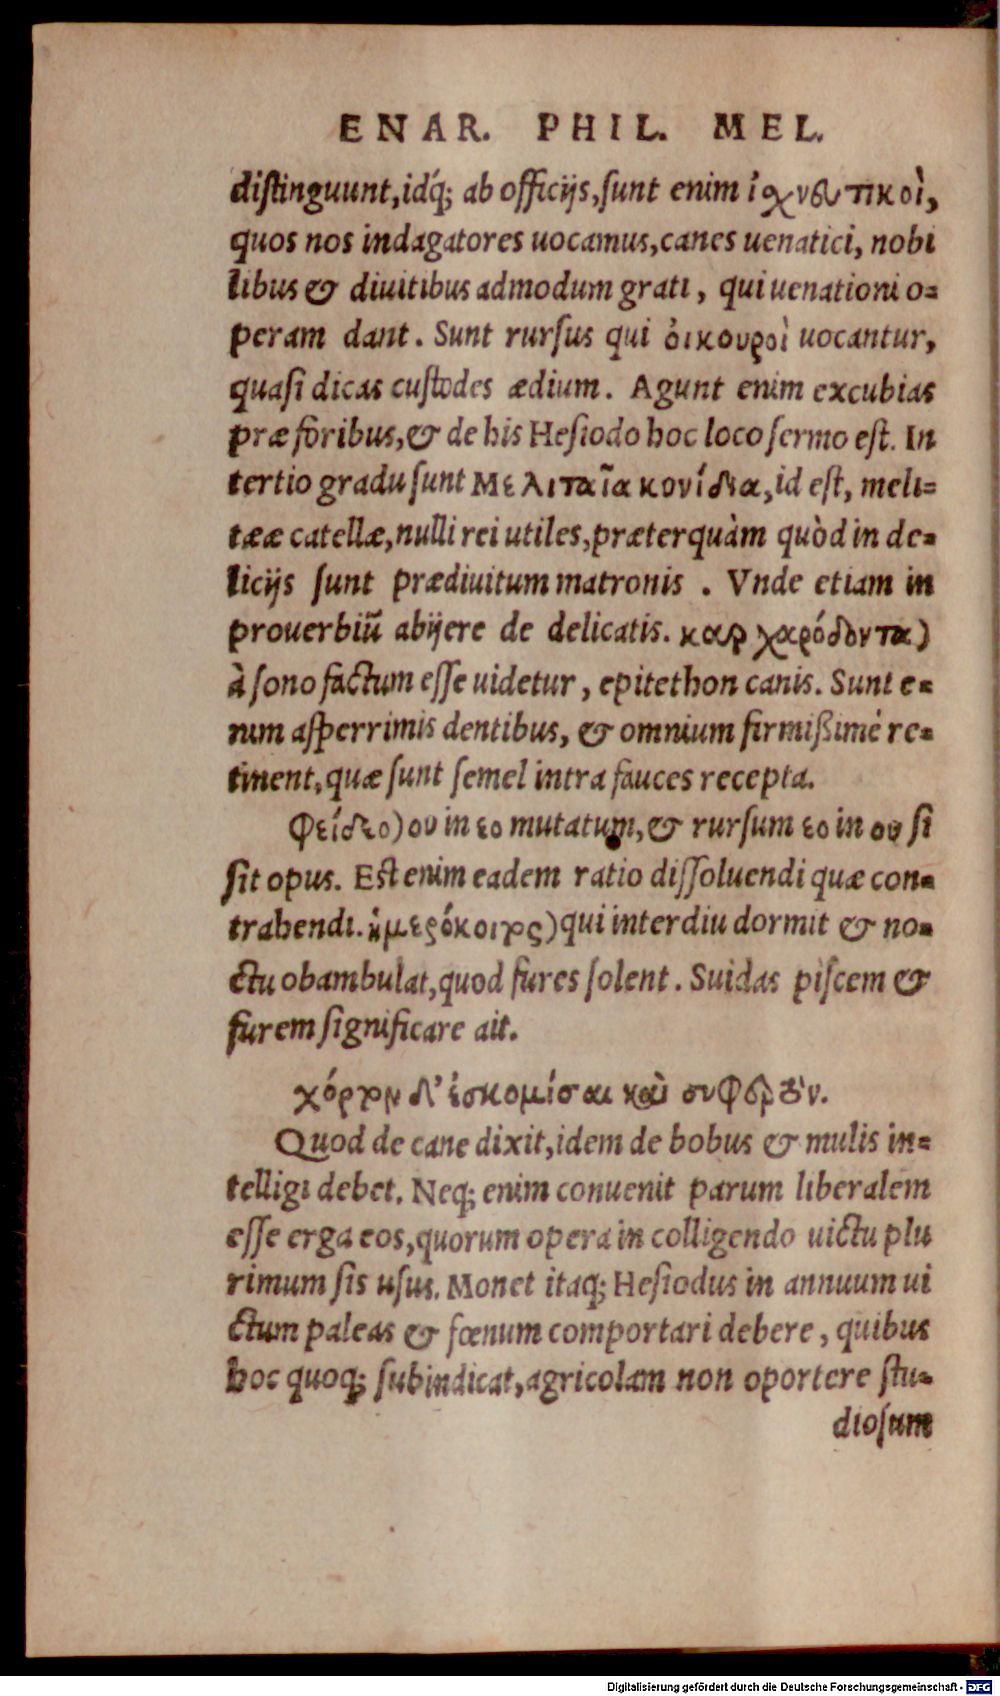 ENAR. PHIL. MEL.
distinguunt, idq́; ab officijs, sunt enim ἰχνευτικοὶ,
quos nos indagatores uocamus, canes uenatici, nobi
libus & diuitibus admodum grati, qui uenationi o=
peram dant. Sunt rursus qui ὀικουροὶ uocantur,
quasi dicas custodes ædium. Agunt enim excubias
præ foribus, & de his Hesiodo hoc loco sermo est. In
tertio gradu sunt Μελιταῖα κονίδια, id est, meli=
tææ catellæ, nulli rei utiles, præterquàm quòd in de=
licijs sunt prædiuitum matronis. Vnde etiam in
prouerbiũ abijere de delicatis. καρχαρόδοντα)
à sono factum esse uidetur, epitethon canis. Sunt e=
nim asperrimis dentibus, & omnium firmißimè re=
tinent, quæ sunt semel intra fauces recepta.
Φείδεο) ου in εο mutatum, & rursum εο in ου si
sit opus. Est enim eadem ratio dissoluendi quæ con=
trahendi. ἡμερόκοιτος) qui interdiu dormit & no=
ctu obambulat, quod fures solent. Suidas piscem &
furem significare ait.
χόρτον δ' ἐσκομίσαι καὶ συφερτὸν.
Quod de cane dixit, idem de bobus & mulis in=
telligi debet. Neq; enim conuenit parum liberalem
esse erga eos, quorum opera in colligendo uictu plu
rimum sis usus. Monet itaq; Hesiodus in annuum ui
ctum paleas & fœnum comportari debere, quibus
hoc quoq; subindicat, agricolam non oportere stu=
diosum
Digitalisierung gefördert durch die Deutsche Forschungsgemeinschaft - DFG